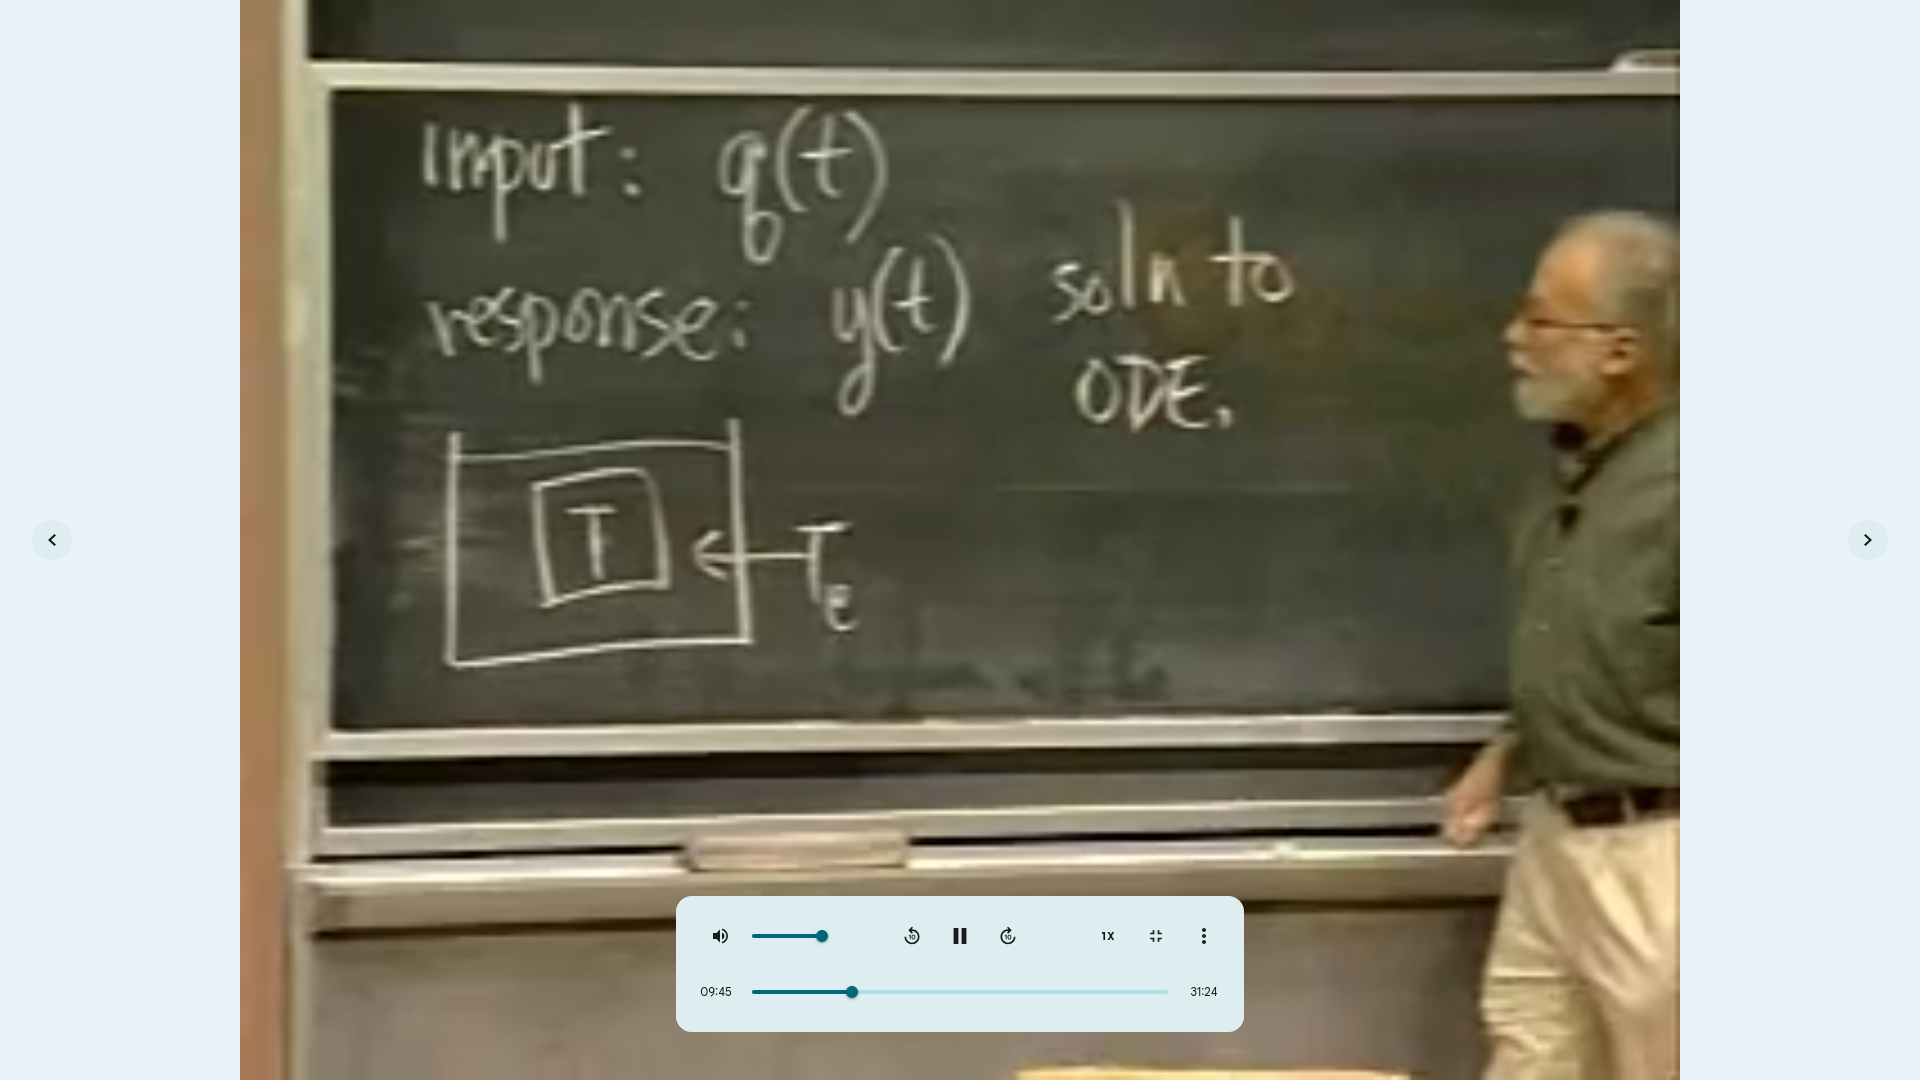 input: q(t)
response: y(t) soln to
ODE.
T
Te
10
10
1X
09:45
31:24